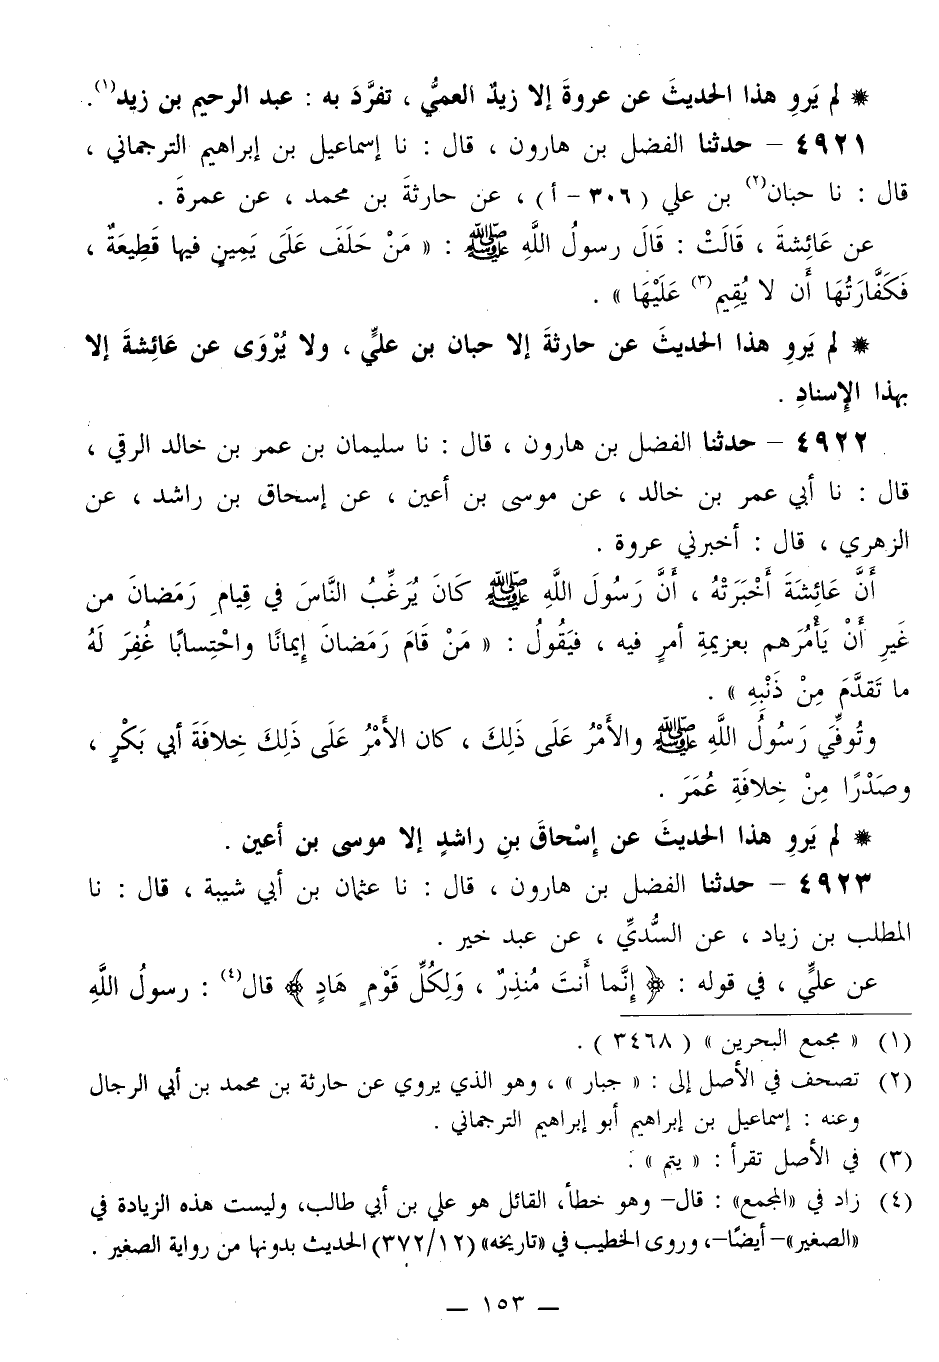 * لم يَروِ هذا الحديثَ عن عروةَ إلا زيدٌ العميُّ ، تفرَّدَ به : عبد الرحيم بن زيد(١).
٤٩٢١ – حدثنا الفضل بن هارون ، قال : نا إسماعيل بن إبراهيم الترجماني ،
قال : نا حبان(٢) بن علي ( ٣٠٦ – أ ) ، عن حارثةَ بن محمد ، عن عمرةَ .
عن عَائِشةَ ، قَالَتْ : قَالَ رسولُ اللَّهِ ﷺ : « مَنْ حَلَفَ عَلَى يَمِينٍ فيها قَطِيعَةٌ ،
فَكَفَّارَتُهَا أَن لا يُقِيم(٣) عَلَيْهَا » .
* لم يَروِ هذا الحديثَ عن حارثةَ إلا حبان بن عليٍّ ، ولا يُرْوَى عن عَائِشةَ إلا
بهذا الإِسنادِ .
٤٩٢٢ – حدثنا الفضل بن هارون ، قال : نا سليمان بن عمر بن خالد الرقي ،
قال : نا أبي عمر بن خالد ، عن موسى بن أعين ، عن إسحاق بن راشد ، عن
الزهري ، قال : أخبرني عروة .
أَنَّ عَائِشَةَ أَخْبَرَتْهُ ، أَنَّ رَسُولَ اللَّهِ ﷺ كَانَ يُرَغِّبُ النَّاسَ في قِيامِ رَمَضانَ من
غَيرِ أَنْ يَأْمُرَهم بعزيمةِ أمرٍ فيه ، فيَقُولُ : « مَنْ قَامَ رَمَضانَ إِيمانًا واحْتِسابًا غُفِرَ لَهُ
ما تَقدَّمَ مِنْ ذَنْبِهِ » .
وتُوفِّيَ رَسُولُ اللَّهِ ﷺ والأَمْرُ عَلَى ذَلِكَ ، كان الأَمْرُ عَلَى ذَلِكَ خِلافَةَ أبي بَكْرٍ ،
وصَدْرًا مِنْ خِلافَةِ عُمَرَ .
* لم يَروِ هذا الحديثَ عن إِسْحاقَ بنِ راشدٍ إلا موسى بن أعين .
٤٩٢٣ – حدثنا الفضل بن هارون ، قال : نا عثمان بن أبي شيبة ، قال : نا
المطلب بن زياد ، عن السُّديِّ ، عن عبد خير .
عن عليٍّ ، في قوله : ﴿ إِنَّما أَنتَ مُنذِرٌ ، وَلِكُلِّ قَوْمٍ هَادٍ ﴾ قال(٤) : رسولُ اللَّهِ
(١) « مجمع البحرين » ( ٣٤٦٨ ) .
(٢) تصحف في الأصل إلى : « جبار » ، وهو الذي يروي عن حارثة بن محمد بن أبي الرجال
وعنه : إسماعيل بن إبراهيم أبو إبراهيم الترجماني .
(٣) في الأصل تقرأ : « يتم » .
(٤) زاد في «المجمع» : قال– وهو خطأ، القائل هو علي بن أبي طالب، وليست هذه الزيادة في
«الصغير»– أيضًا–، وروى الخطيب في «تاريخه» (٣٧٢/١٢) الحديث بدونها من رواية الصغير .
— ١٥٣ —